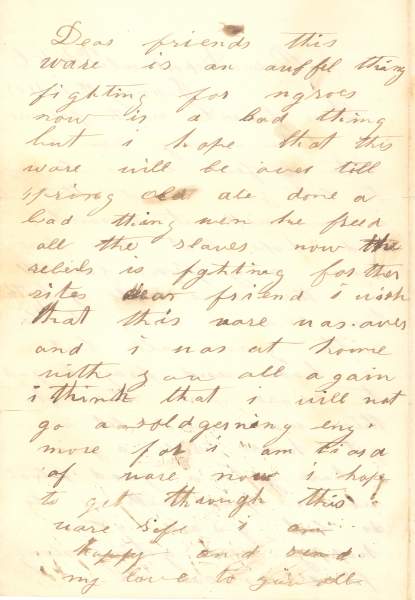 Dear friends this
ware is an auffel thing
fighting for ngroes
now is a bad thing
but i hope that this
ware will be over till
spring old abe done a
bad thing wen he freed
all the slaves now the
rebels is fghting for ther
rites dear friend i wish
that this ware was over
and i was at home
with you all again
i think that i will not
go a soldgerning eny
more for i am tierd
of ware now i hope
to get through this
ware safe i am
happy and send
my love to you all